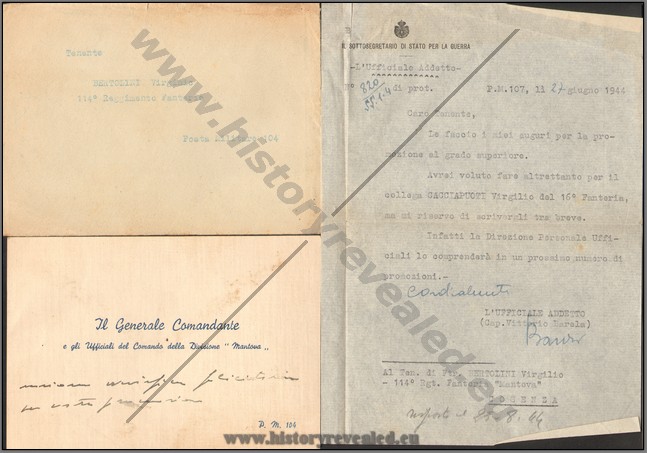 Tenente
BERTOLINI Virgilio
144° Reggimento Fanteria
Posta Militare 104
Il Generale Comandante
e gli Ufficiali del Comando della Divisione "Mantova"
felicitazioni
P. M. 104
IL SOTTOSEGRETARIO DI STATO PER LA GUERRA
-L'Ufficiale Addetto-
N° 820 di prot.
P.M.107, li 27 giugno 1944
Caro Tenente,
Le faccio i miei auguri per la pro-
mozione al grado superiore.
Avrei voluto fare altrettanto per il
collega CACCIAPUOTI Virgilio del 16° Fanteria,
ma mi riservo di scrivergli tra breve.
Infatti la Direzione Personale Uffi-
ciali lo comprenderà in un prossimo numero di
promozioni.-
Cordialmente
L'UFFICIALE ADDETTO
(Cap. Vittorio
Al Ten. di Ftr. BERTOLINI Virgilio
- 144° Rgt. Fanteria "Mantova"
COSENZA
risposto il 8.44
www.historyrevealed.eu
www.historyrevealed.eu